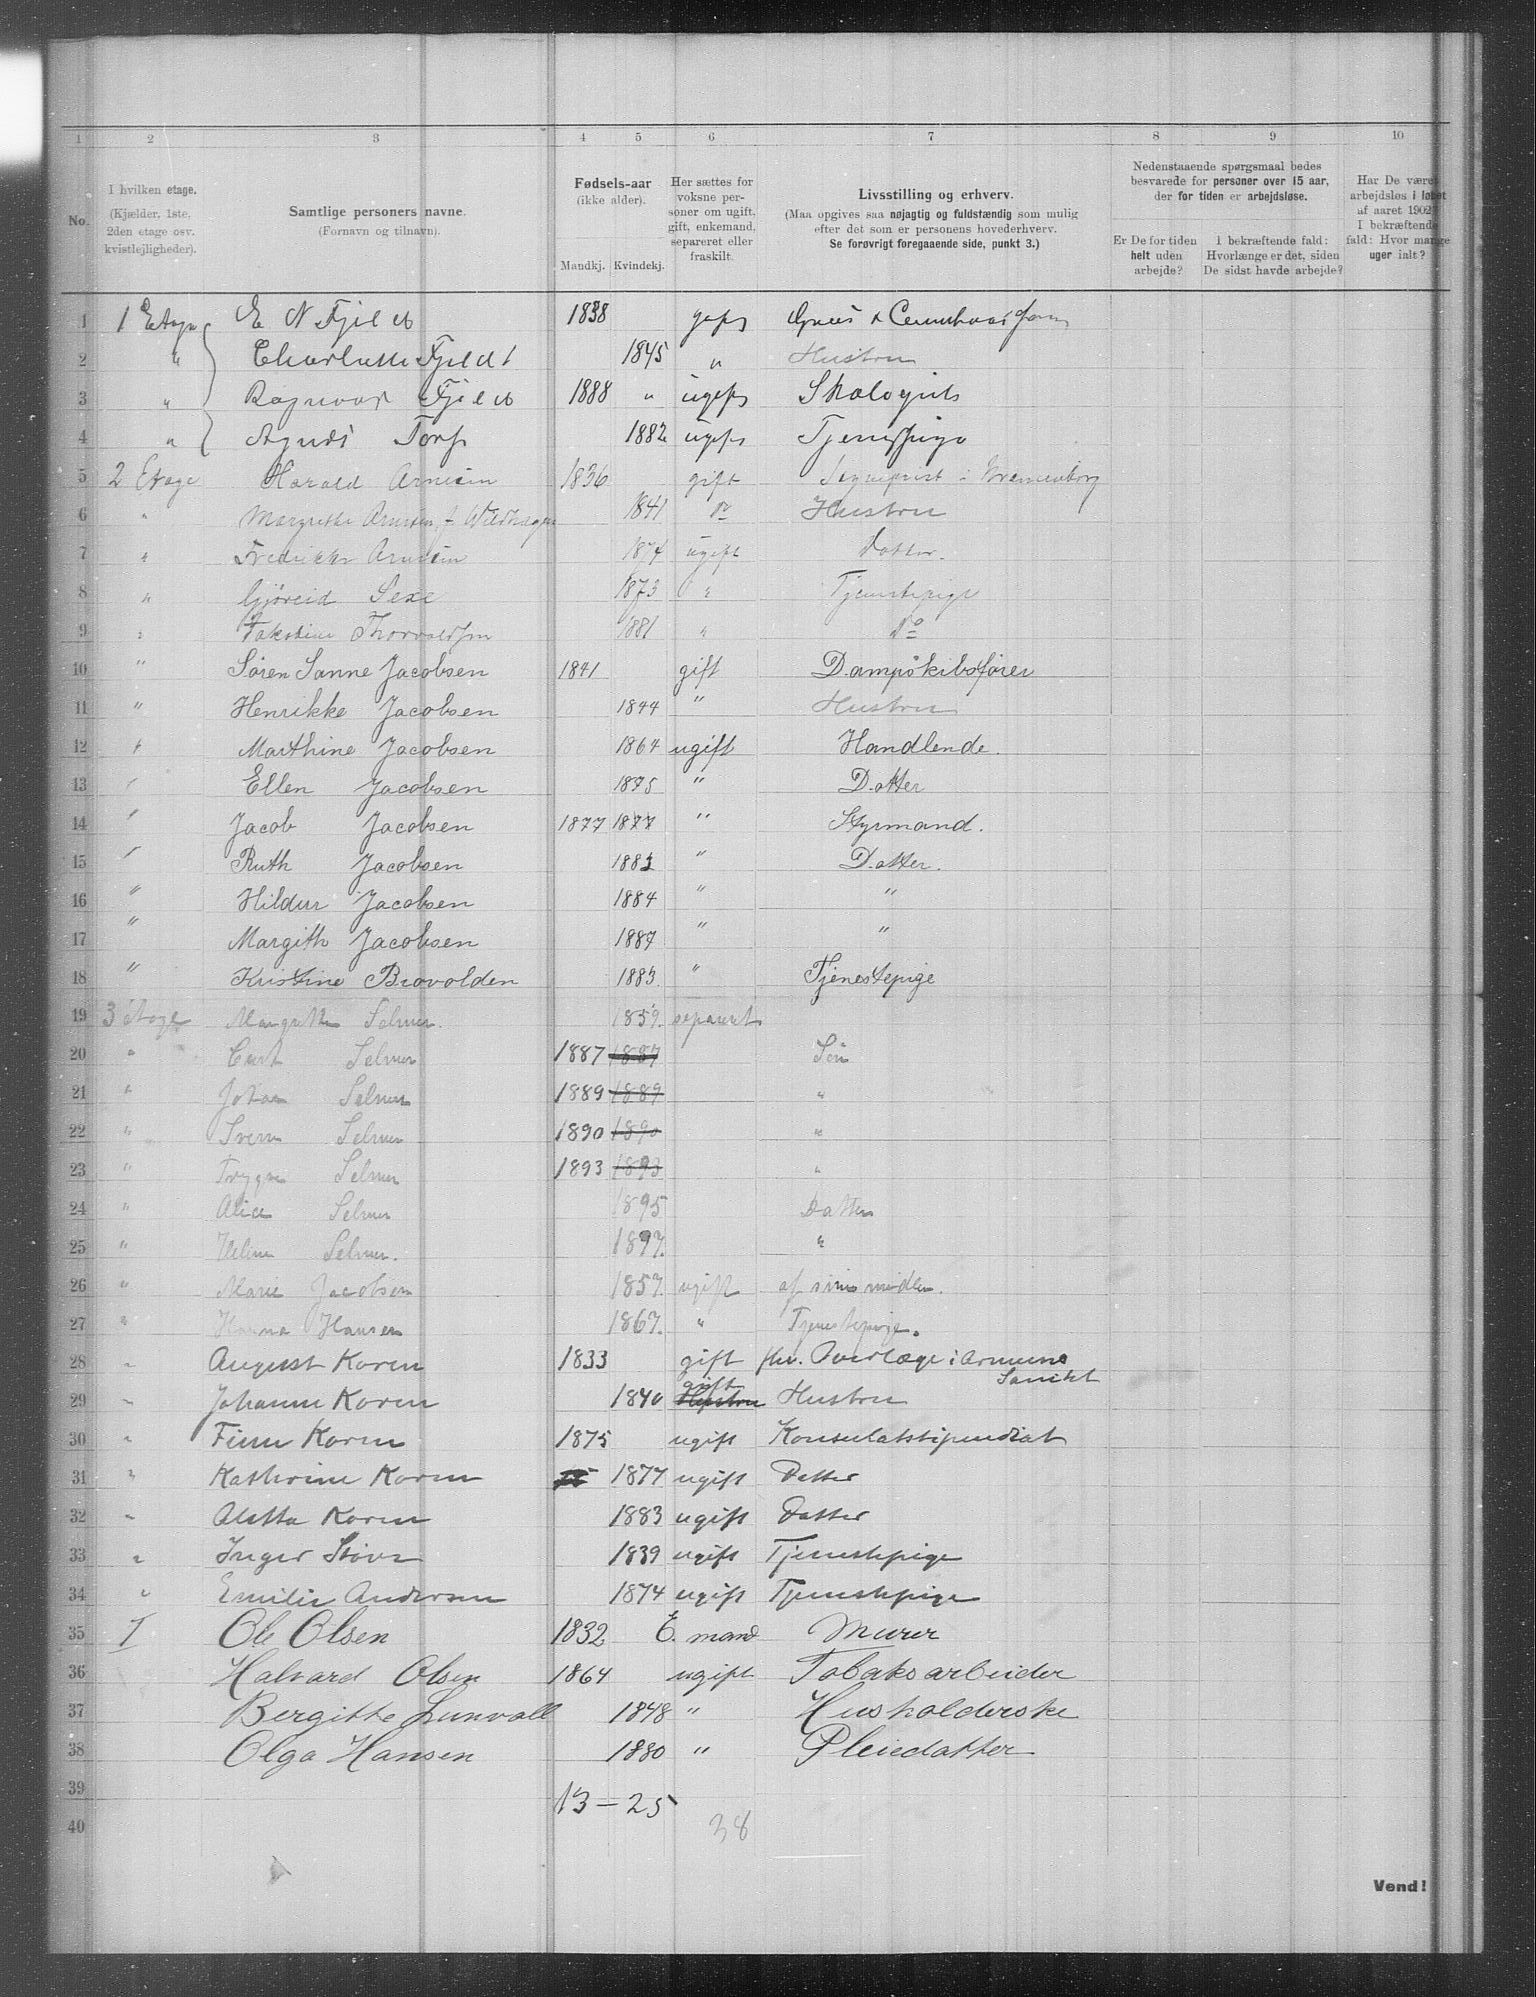 1 2 3 4 5 6 7 8 9 10
No.
I hvilken etage.
(Kjælder, 1ste,
2den etage osv.
kvistlejligheder).
Samtlige personers navne.
(Fornavn og tilnavn).
Fødsels-aar
(ikke alder).
Mandkj. Kvindekj.
Her sættes for
voksne per-
soner om ugift,
gift, enkemand,
separeret eller
fraskilt.
Livsstilling og erhverv.
(Maa opgives saa nøjagtig og fuldstændig som mulig
efter det som er personens hovederhverv.
Se forøvrigt foregaaende side, punkt 3.)
Nedenstaaende spørgsmaal bedes
besvarede for personer over 15 aar,
der for tiden er arbejdsløse.
Er De for tiden
helt uden
arbejde?
I bekræftende fald:
Hvorlænge er det, siden
De sidst havde arbejde?
Har De været
arbejdsløs i løbet
af aaret 1902
I bekræftende
fald: Hvor mange
uger ialt?
1 1 Etage E N Fjeldt 1838 gift
2 " Charlotte Fjeldt 1845 " Hustru
3 " Ragnvar Fjeldt 1888 " ugift Skolegut
4 " Agnes Torp 1882 ugift Tjenestpige
5 2 Etage Harald Arnesen 1836 gift Sogneprest i
6 " Margrethe Arnesen f. Wildhagen 1841 Do Hustru
7 " Fredrikke Arnesen 1874 ugift Datter.
8 " Gjøreid Sexe 1873 " Tjenestepige
9 " Thorvaldsen 1881 " Do
10 " Søren Sanne Jacobsen 1841 gift Dampskibsfører
11 " Henrikke Jacobsen 1844 " Hustru
12 " Marthine Jacobsen 1864 ugift Handlende.
13 " Ellen Jacobsen 1875 " Datter
14 " Jacob Jacobsen 1877 1877 " Styrmand.
15 " Ruth Jacobsen 1883 " Datter.
16 " Hildur Jacobsen 1884 " "
17 " Margith Jacobsen 1887 " "
18 " Kristine Brovolden 1883. " Tjenestepige
19 3 Etage Margrethe Selmer. 1859. separeret
20 " Curt Selmer 1887 1887 Søn
21 " Johan Selmer 1889 1889 "
22 " Svenn Selmer 1890 1890 "
23 " Trygve Selmer 1893 1893 "
24 " Alice Selmer 1895 Datter
25 " Helene Selmer. 1897. "
26 " Marie Jacobsen 1857. ugift af sine midler.
27 " Hanna Hansen 1867. " Tjenestepige.
28 " August Koren 1833 gift fhv. Overlæge i Armeens
Sanitet
29 " Johanne Koren 1840 gift Hustru Hustru
30 " Finn Koren 1875 ugift Konsulatstipendiat
31 " Kathrine Koren 1877 ugift Datter
32 " Aletta Koren 1883 ugift Datter
33 " Inger Støve 1839 ugift Tjenestepige
34 " Emilie Andersen 1874 ugift Tjenestepige
35 1 Ole Olsen 1832 E. mand Murer
36 Halvard Olsen 1864 ugift Tobaksarbeider
37 Bergitte Lunvall 1848 " Husholderske
38 Olga Hansen 1880 " Pleiedatter
39 13 — 25
40 38
Vend!